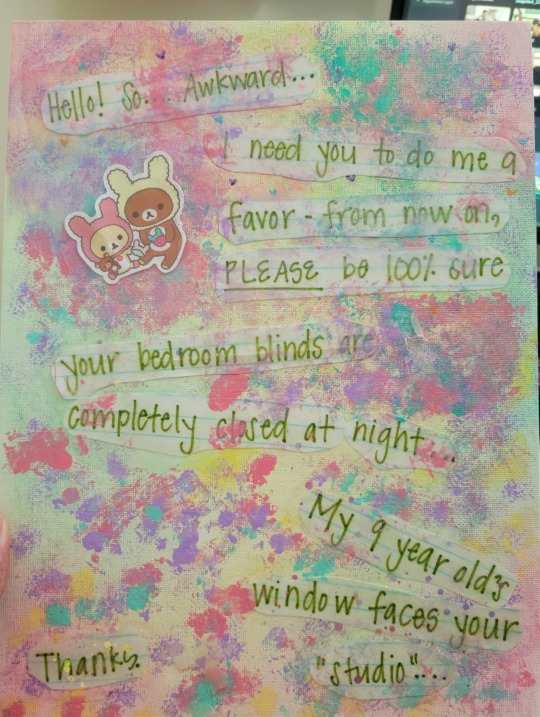 Hello! So.... Awkward...
I need you to do me a
favor - from now on,
PLEASE be 100% sure
your bedroom blinds are
completely closed at night...
My 9 year old's
window faces your
"studio"....
Thanks.